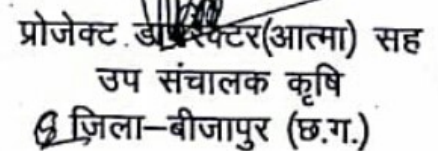 प्रोजेक्ट डायरेक्टर(आत्मा) सह
उप संचालक कृषि
जिला–बीजापुर (छ.ग.)